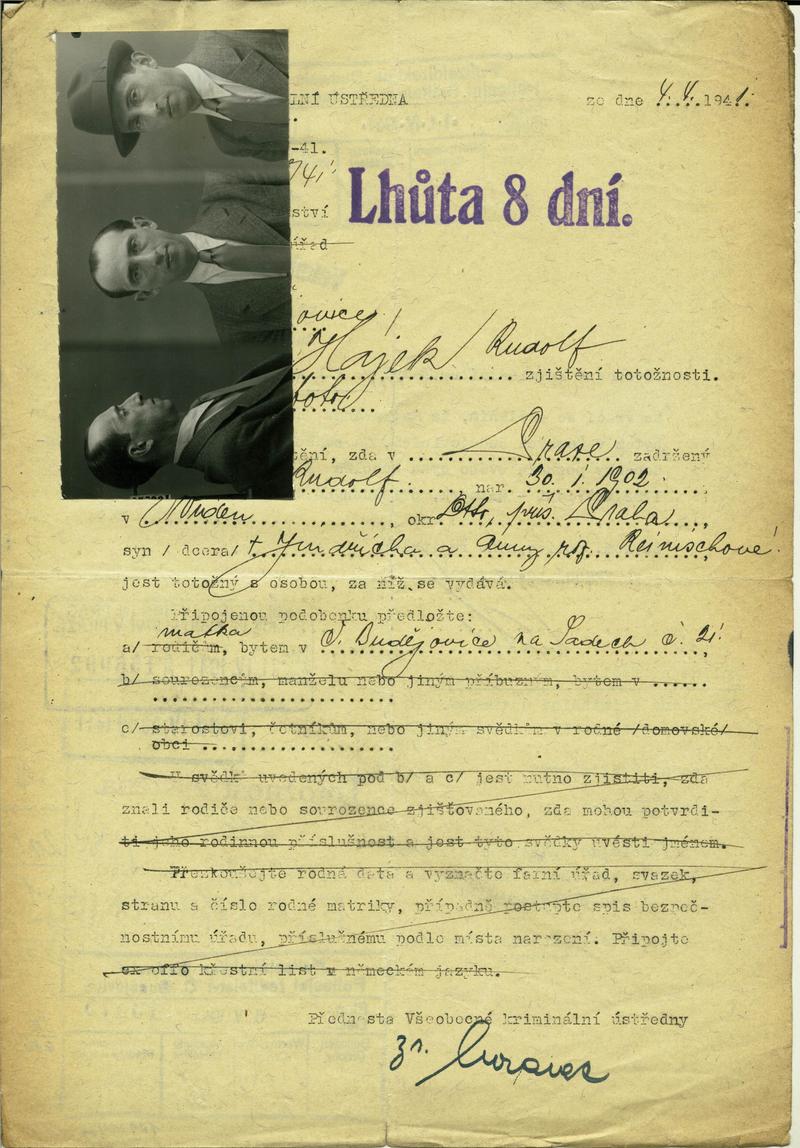 LNÍ ÚSTŘEDNA ze dne 4.4.1941.
-41.
741
Lhůta 8 dní.
ství
úřad
ovice/
Hájek Rudolf
zjištění totožnosti.
tění, zda v Praze zadržený
Rudolf nar. 30. 1. 1902.
v , okr. , přís. Praha,
syn / dcera/ † Jindřicha a Anny roz. Reinischové
jest totožný s osobou, za níž se vydává.
Připojenou podobenku předložte:
matka
a/ rodičům, bytem v Č. Budějovice na Sadech č. 21.,
b/ sourozencům, manželu nebo jiným příbuzným, bytem v ......
c/ starostovi, četníkům, nebo jiným svědkům v rodné /domovské/
obci ....................
U svědků uvedených pod b/ a c/ jest nutno zjistiti, zda
znali rodiče nebo sourozence zjišťovaného, zda mohou potvrdi-
ti jeho rodinnou příslušnost a jest tyto svědky uvésti jménem.
Přezkoušejte rodná data a vyznačte farní úřad, svazek,
stranu a číslo rodné matriky, případně postupte spis bezpeč-
nostnímu úřadu, příslušnému podle místa narození. Připojte
ex offo křestní list v německém jazyku.
Přednosta Všeobecné kriminální ústředny